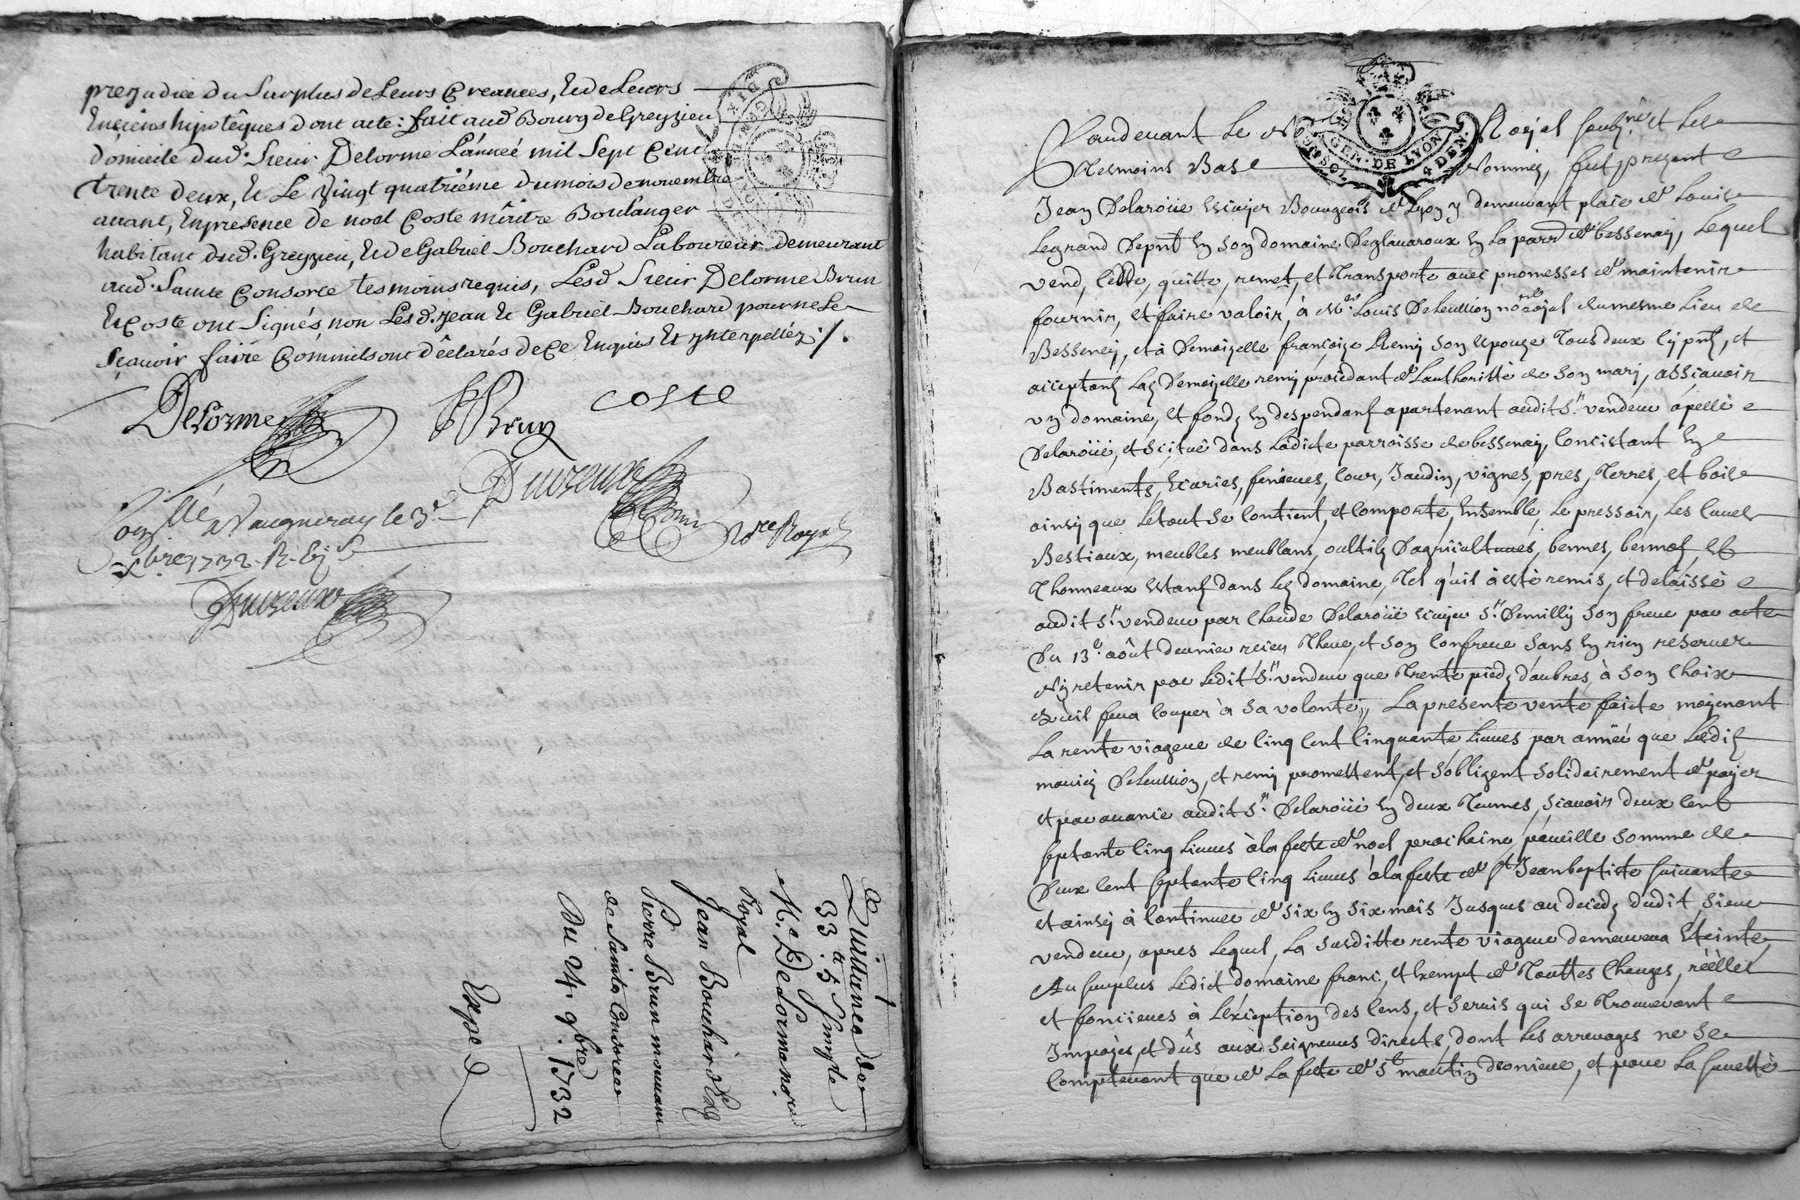 prejudice du Surplus de Leurs Creances, Et de Leurs
Enciens hipotêques dont acte : fait aud Bourg de Greyzieu
domicile dud. Sieur Delorme L'année mil Sept Cent
trente deux, Et Le Vingt quatriéme du mois de novembre
auant, En presence de noel Coste mêitre Boulanger
habitant dud. Greyzieu, Et de Gabriel Bouchard Laboureur demeurant
aud. Sainte Consorce tesmoins requis, Lesd Sieur Delorme Brun
Et Coste ont Signés non Lesd. Jean Et Gabriel Bouchard pour ne Le
sçauoir faire Comm'ils ont dêclarés de Ce Enquis Et ynterpellez ./.
Delorme
Brun
Coste
Duvzeux
No.re Royal
Con.llé a Vaugneray le 3.e
xbre 1732. R.
Duvzeux
de Quittance de
33 # 5 s simple
M.e DeLorme no.re
Royal
Jean Bouchard
Pierre Brun mounann
de Sainte Consorce
Du 24. 9bre 1732
Expe d
GEN. DE LYON
Pardeuant Le No Royal soubz.né et Les
Tesmoins Bas Nommés, fut present
Jean Delaroüe Escuyer Bourgeois de Lyon y demeurant place de Louis
Legrand Depnt En son domaine Deglauaroux En La parr.e de bessenay, Lequel
vend, Cedde, quitte, remet, et Transporte auec promesses de maintenir
fournir, et faire valoir, à M.e Louis Deleullion no.re royal du mesme Lieu de
Bessenay, et à Demoizelle françoize Remy son Epouze Tous deux Cy pnts, et
acceptans Lad. Demoizelle remy procedant de Lauthoritté de son mary, assauoir
un domaine, et fonds En despendans apartenant audit S.r vendeur apellé
Delaroüe, et scitué dans Ladicte parroisse de bessenay, Concistant En
Bastiments, Ecuries, fenieres, Cour, Jardin, vignes, pres, Terres, et bois
ainsy que Le tout se Contient, et Comporte, Ensemble, Le pressoir, Les Cuues
Bestiaux, meubles meublans, oultilz Dagricultures, bennes, bennots, et
Thonneaux Estans dans Led. domaine, Tel qu'il à esté remis, et delaissé
audit S.r vendeur par Claude Delaroüe Ecuyer S.r Demilly son frere par acte
Du 13.e août dernier recieu Theue, et son Confrere sans En rien reserver
Ny retenir par Ledit S.r vendeur que Trente pieds d'aubres à son Choix
qu'il fera Couper à sa volonté, La presente vente faicte moyenant
La rente viagere de Cinq Cent Cinquante Liures par année que Lesdits
mariés Deleullion, et remy promettent, et s'obligent solidairement de payer
et par auance audit S.r Delaroüe En deux Termes, sçauoir deux Cent
septante Cinq Liures à la feste de noel prochaine pareille somme de
Deux Cent septante Cinq Liures à la feste de S.t Jean baptiste suiuante
et ainsy à Continuer de six En six mois Jusques au deceds dudit sieur
vendeur, apres Lequel, La susditte rente viagere demeurera Eteinte,
Au surplus Ledict domaine franc, et Exempt de Touttes Charges, réèlles
et foncieres à L'exception des Cens, et seruis qui se Trouueront
Imposés, et dûs aux Seigneurs directs, dont Les arrerages ne se
Compteront que de La feste de S.t martin derniere, et pour La sureté